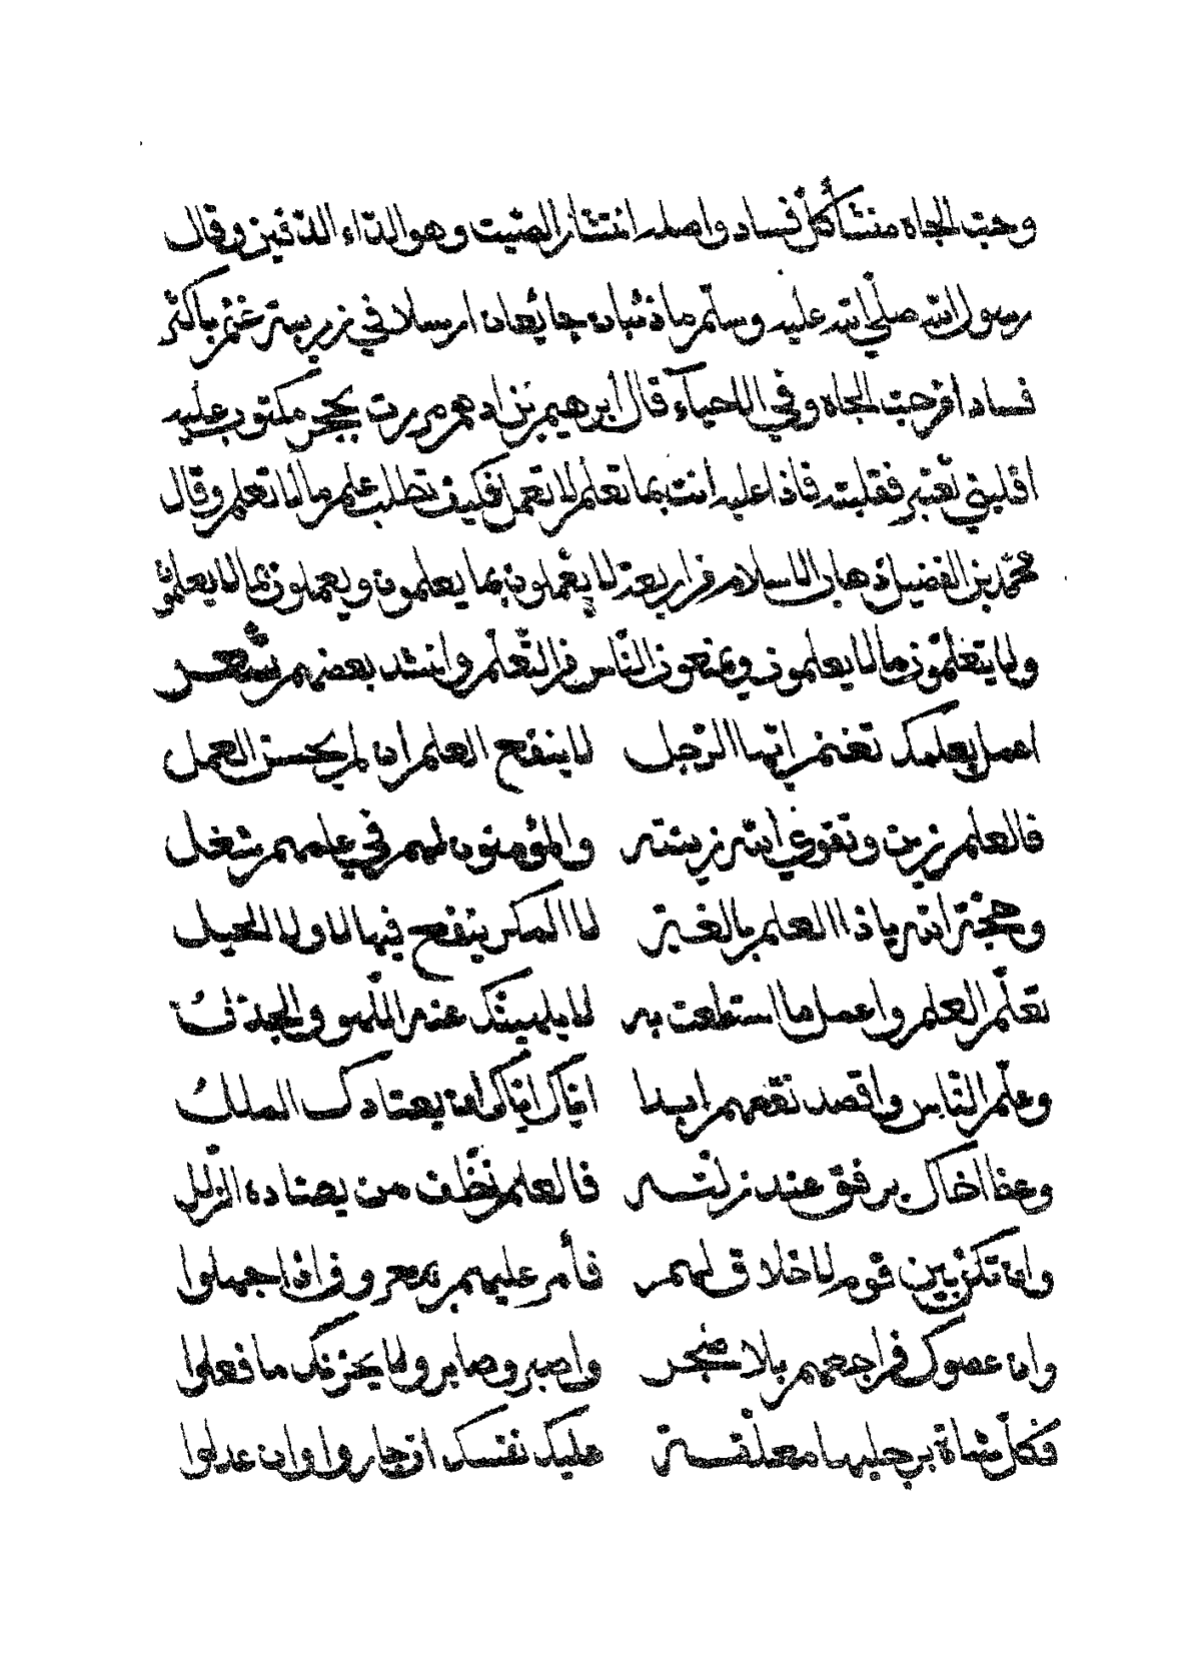 وحبّ الجاه منشأ كلّ فساد واصله انتشار الصّيت وهو الدّاء الدّفين وقال
رسول الله صلّى الله عليه وسلّم ما ذئبان جائعان ارسلا في زريبة غنم باكثر
فسادا من حبّ الجاه وفي الاحياء قال أبرهيم بن ادهم مررت بحجر مكتوب عليه
اقلبني تعتبر فقلبته فاذا عليه انت بما تعلم لا تعمل فكيف تطلب علم ما لا تعلم وقال
محمّد بن الفضيل ذهاب الاسلام من اربعة لا يعملون بما يعلمون ويعملون بما لا يعلمون
ولا يتعلّمون ما لا يعلمون ويمنعون النّاس من التّعلّم وانشد بعضهم شعر
اعمل بعلمك تغنم ايّها الرّجل لا ينفع العلم ان لم يحسن العمل
فالعلم زين وتقوى الله زينته والمؤمنون لهم في علمهم شغل
وحجّة الله ياذا العلم بالغة لا المكر ينفع فيها لا ولا الحيل
تعلّم العلم واعمل ما استطعت به لا يلهينّك عنه اللّهو والجذل
وعلّم النّاس واقصد نفعهم ابدا ايّاك ايّاك ان يعتادك الملل
وعظ اخاك برفق عند زلّته فالعلم يعطف من يعتاده الزّلل
وان تكن بين قوم لا خلاق لهم فأمر عليهم بمعروف اذا جهلوا
وان عصوك فراجعهم بلا ضجر واصبر وصابر ولا يحزنك ما فعلوا
فكلّ شاة برجليها معلّقة عليك نفسك ان جاروا وان عدلوا